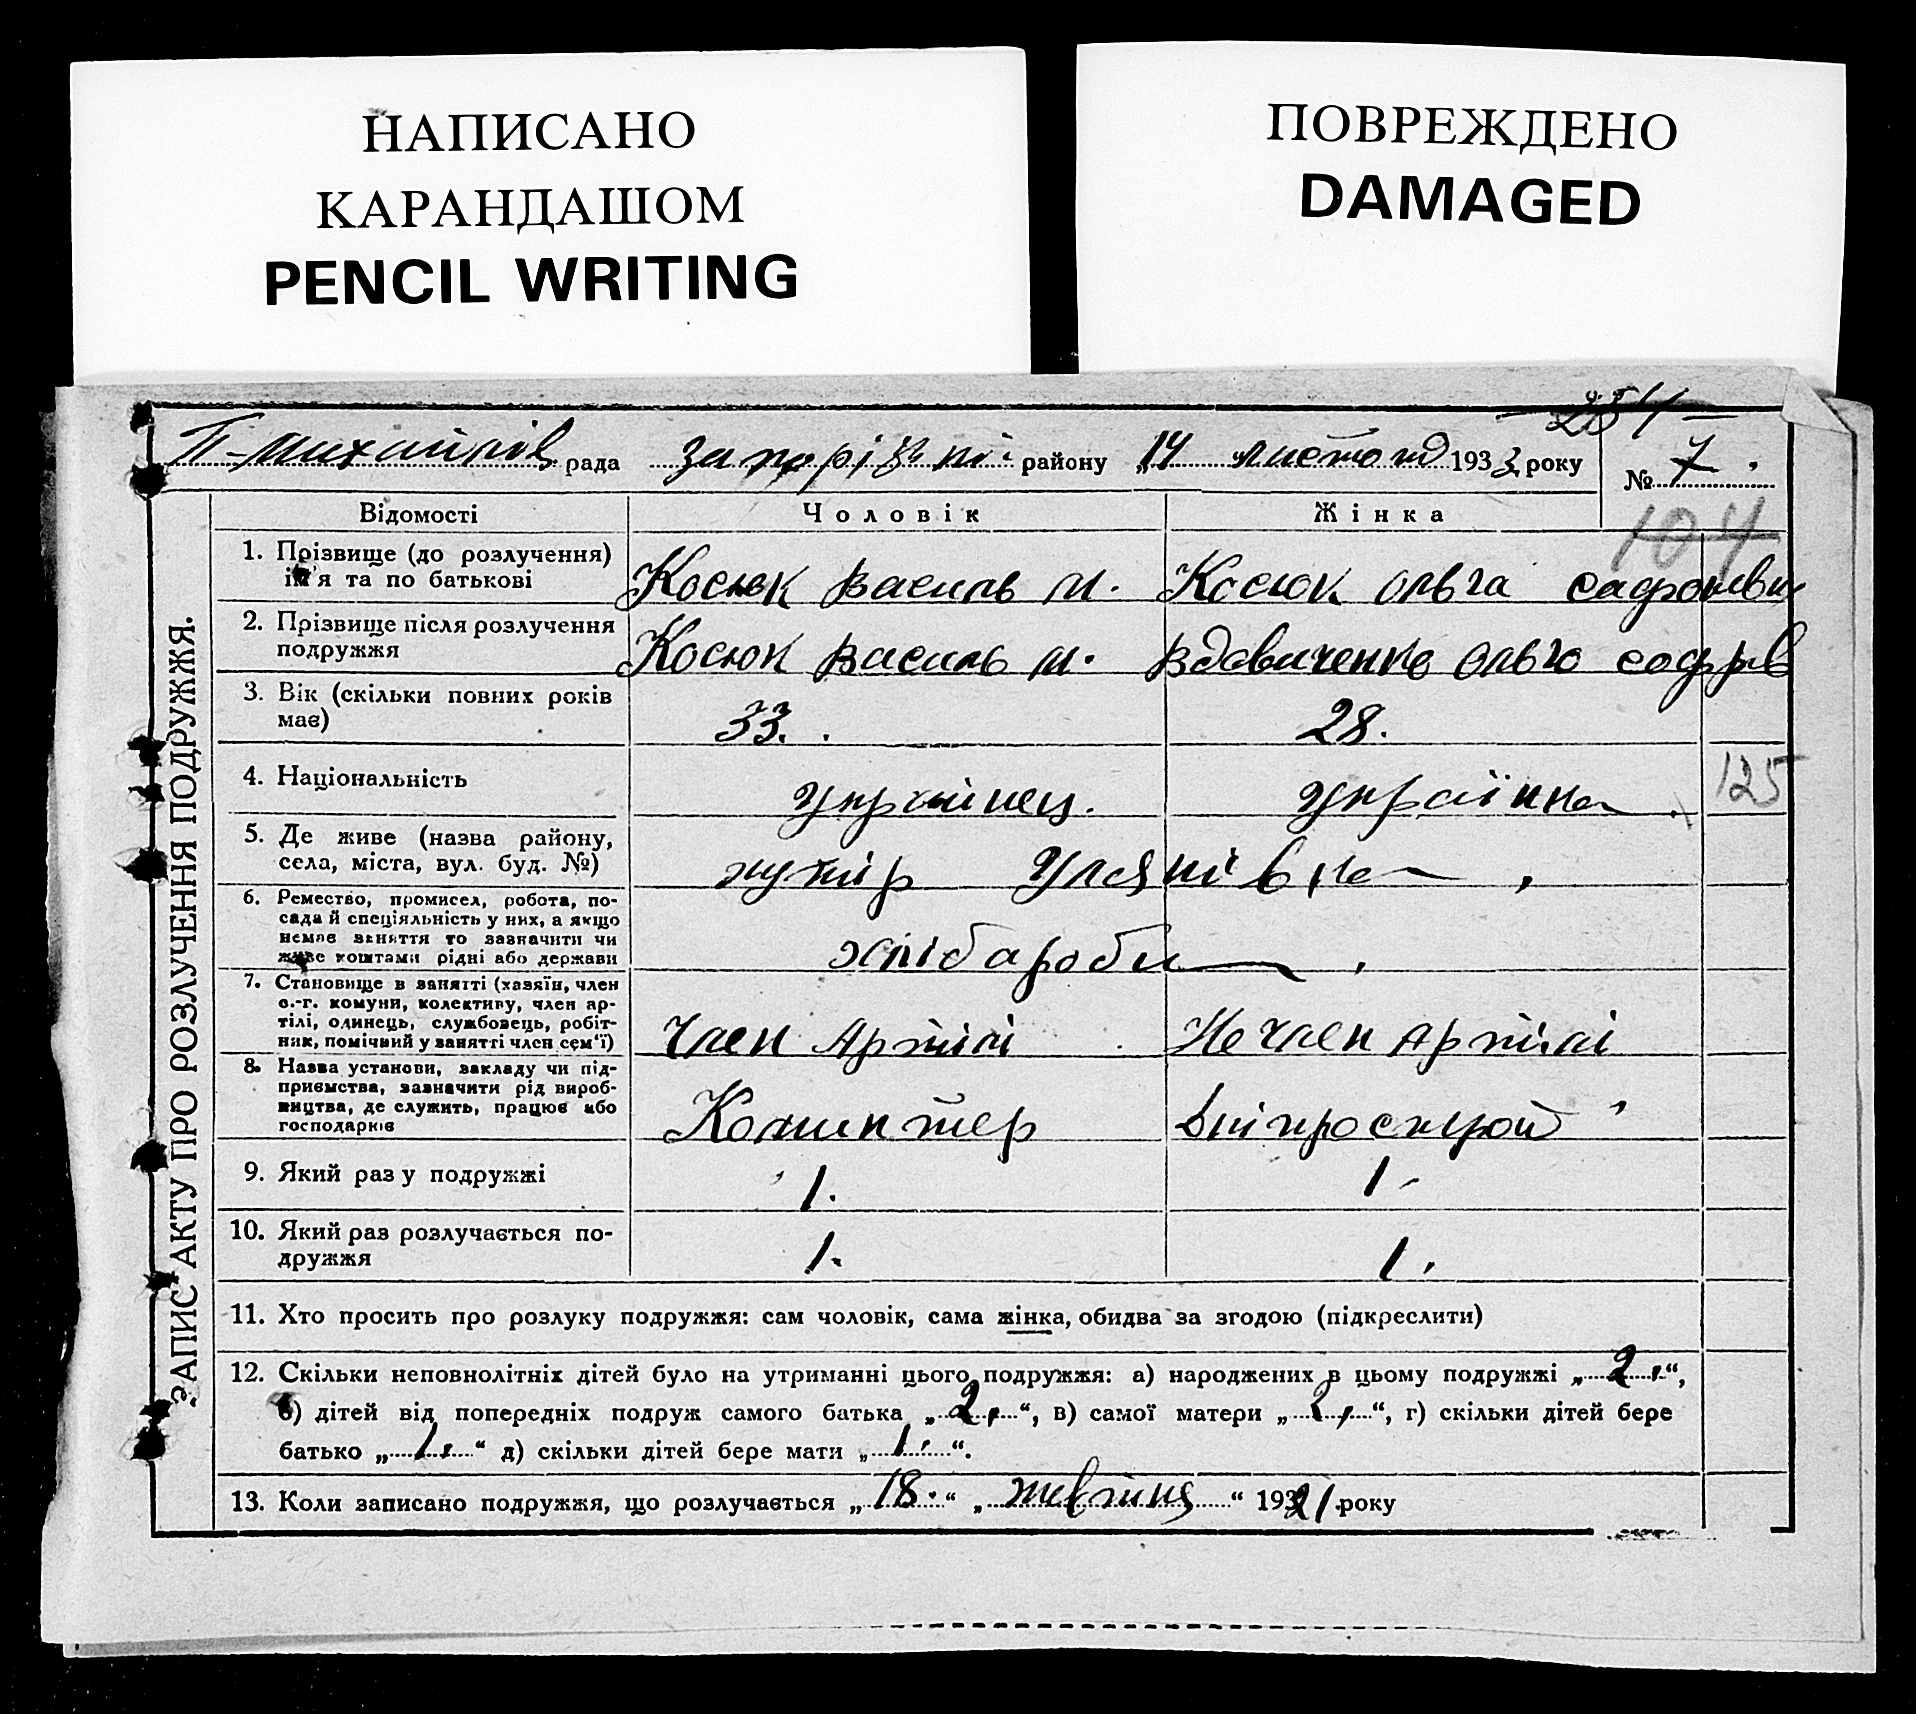 НАПИСАНО
КАРАНДАШОМ
PENCIL WRITING
ПОВРЕЖДЕНО
DAMAGED
П-Михайлів рада району „14 листопад 1933 року № 7.
104
Відомості Чоловік Жінка
1. Прізвище (до розлучення)
ім'я та по батькові
Косюк Василь М. Косюк Ольга
2. Прізвище після розлучення
подружжя
Косюк Василь М. Вдовиченко Ольга
3. Вік (скільки повних років
має)
33. 28.
4. Національність
українец. українка
125
5. Де живе (назва району,
села, міста, вул. буд. №)
хутір Улянівка
6. Ремество, промисел, робота, по-
сада й спеціяльність у них, а якщо
немає заняття то зазначити чи
живе коштами рідні або держави
хлібароби
7. Становище в занятті (хазяїн, член
с.-г. комуни, колективу, член ар-
тілі, одинець, службовець, робіт-
ник, помічний у занятті член сем'ї)
Член Артілі Не член Артілі
8. Назва установи, закладу чи під-
приємства, зазначити рід вироб-
ництва, де служить, працює або
господарює
Комінтер Дніпрострой
9. Який раз у подружжі
1. 1.
10. Який раз розлучається по-
дружжя
1. 1.
11. Хто просить про розлуку подружжя: сам чоловік, сама жінка, обидва за згодою (підкреслити)
12. Скільки неповнолітніх дітей було на утриманні цього подружжя: а) народжених в цьому подружжі „2.“,
б) дітей від попередніх подруж самого батька „2.“, в) самої матери „2.“, г) скільки дітей бере
батько „1.“ д) скільки дітей бере мати „1.“.
13. Коли записано подружжя, що розлучається „18.“ „жевтня“ 1921 року
ЗАПИС АКТУ ПРО РОЗЛУЧЕННЯ ПОДРУЖЖЯ.